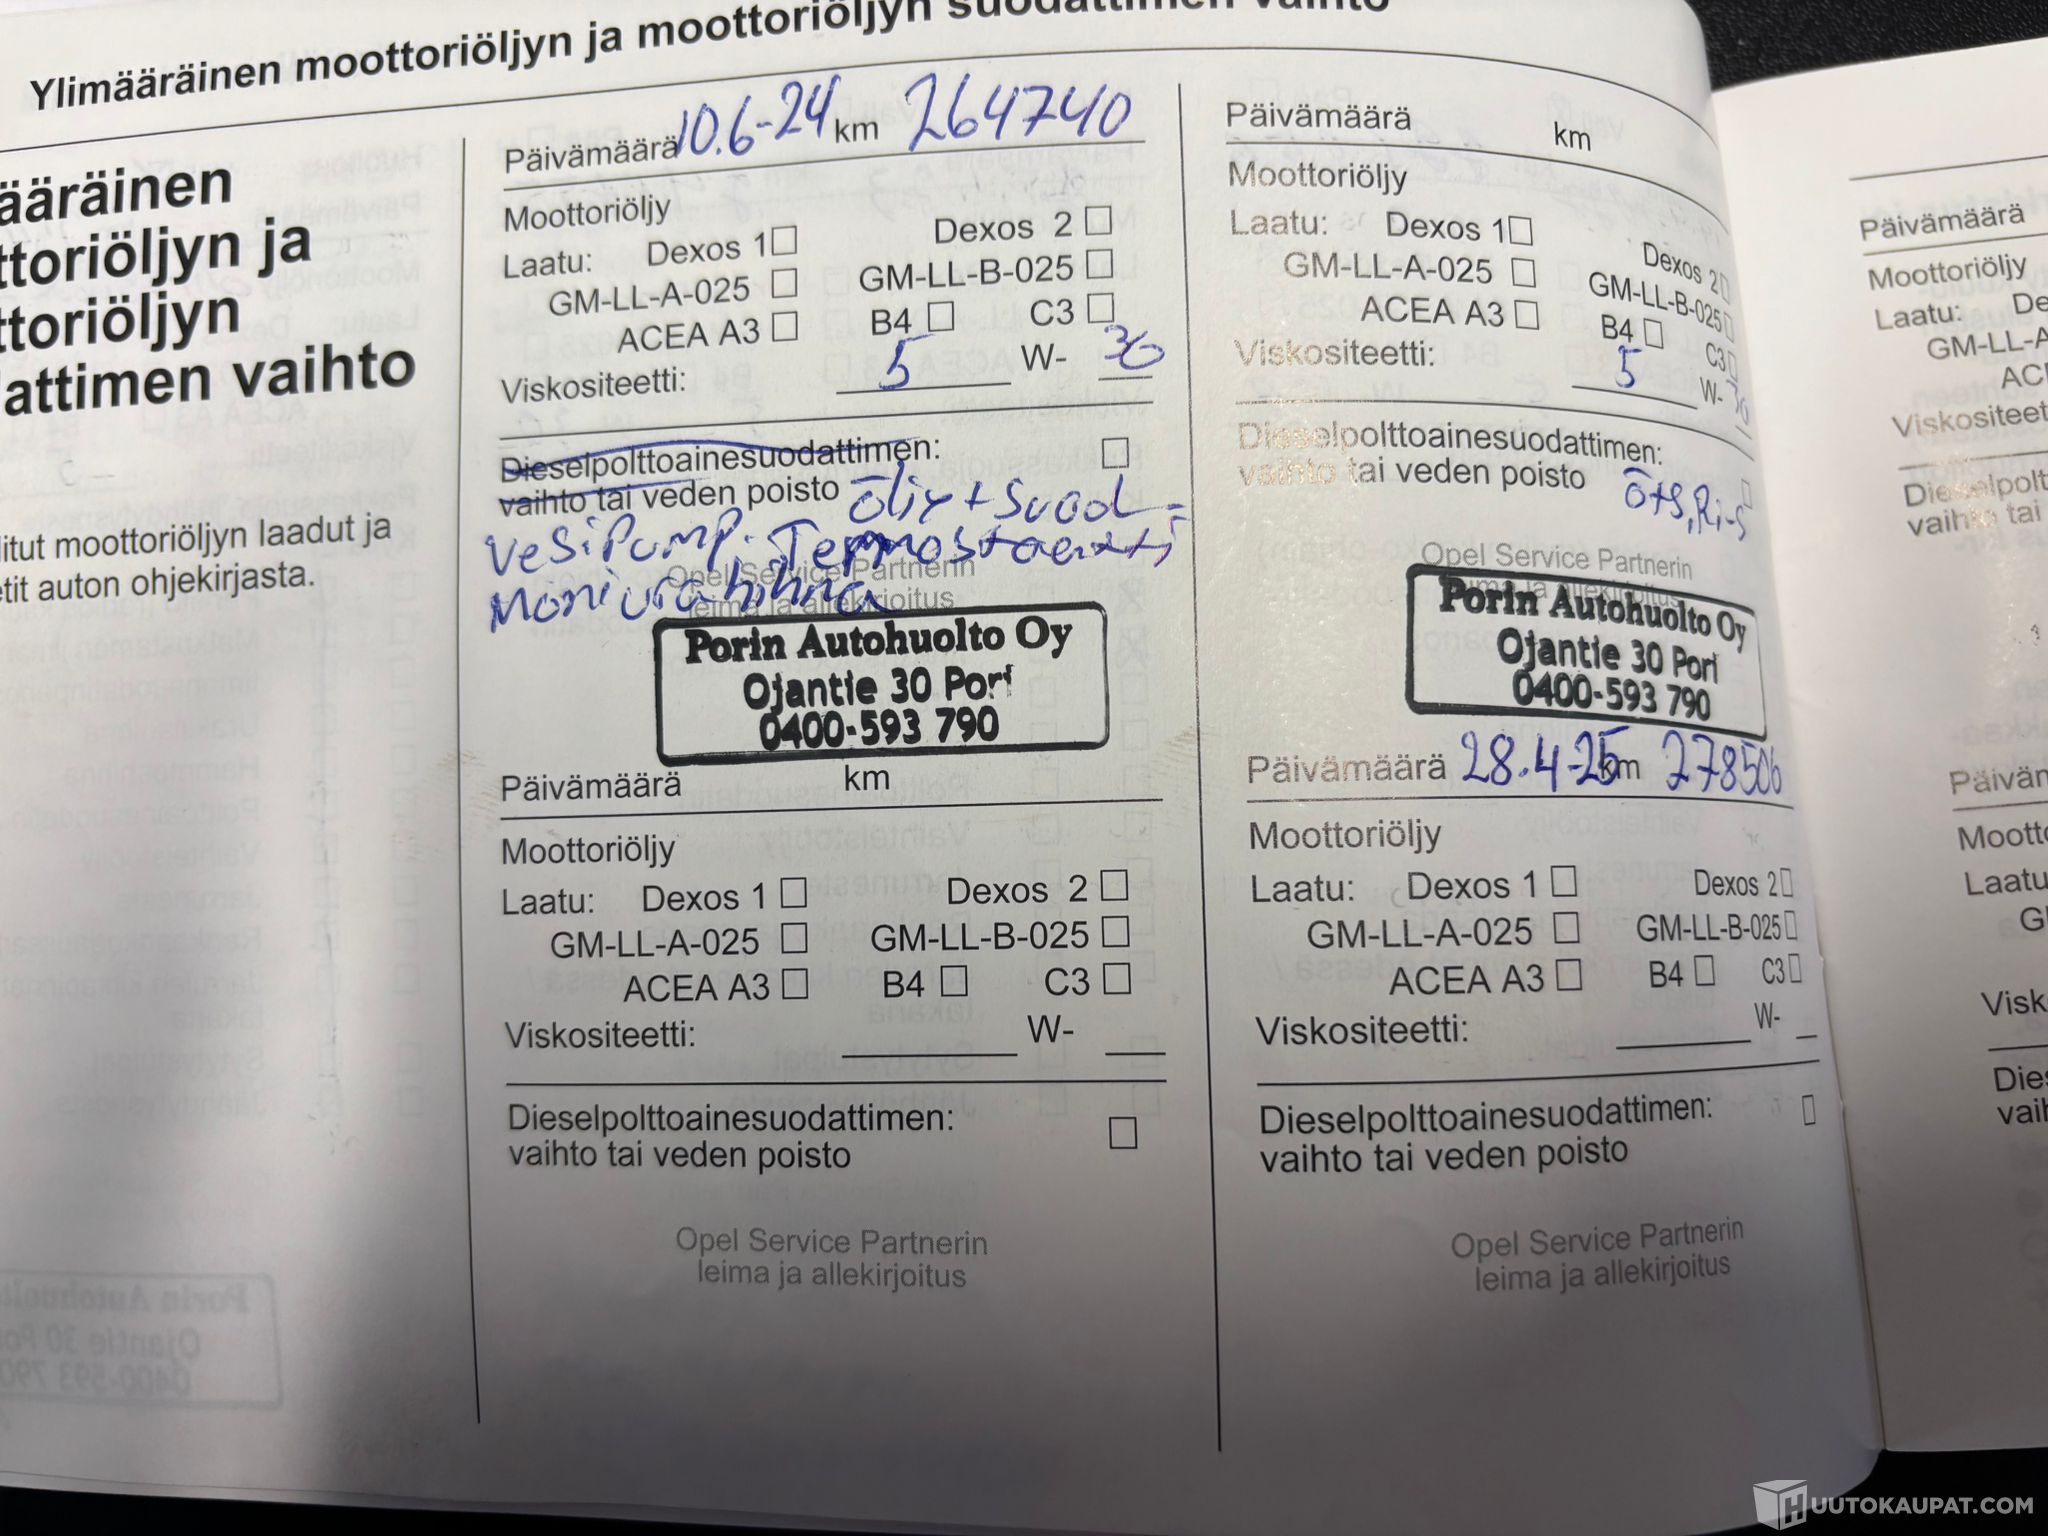 Ylimääräinen moottoriöljyn ja moottoriöljyn suodattimen vaihto
ääräinen
ttoriöljyn ja
ttoriöljyn
attimen vaihto
litut moottoriöljyn laadut ja
etit auton ohjekirjasta.
Päivämäärä 10.6-24 km 264740
Moottoriöljy
Laatu: Dexos 1 Dexos 2
GM-LL-A-025 GM-LL-B-025
ACEA A3 B4 C3
Viskositeetti: 5 W- 30
Dieselpolttoainesuodattimen:
vaihto tai veden poisto öljy + suod =
vesipump. Termostaatti,
moniurahihna
Opel Service Partnerin
leima ja allekirjoitus
Porin Autohuolto Oy
Ojantie 30 Pori
0400-593 790
Päivämäärä km
Moottoriöljy
Laatu: Dexos 1 Dexos 2
GM-LL-A-025 GM-LL-B-025
ACEA A3 B4 C3
Viskositeetti: W-
Dieselpolttoainesuodattimen:
vaihto tai veden poisto
Opel Service Partnerin
leima ja allekirjoitus
Päivämäärä km
Moottoriöljy
Laatu: Dexos 1 Dexos 2
GM-LL-A-025 GM-LL-B-025
ACEA A3 B4 C3
Viskositeetti: 5 W- 30
Dieselpolttoainesuodattimen:
vaihto tai veden poisto ö+s, Ri-s
Opel Service Partnerin
leima ja allekirjoitus
Porin Autohuolto Oy
Ojantie 30 Pori
0400-593 790
Päivämäärä 28.4-25 km 278506
Moottoriöljy
Laatu: Dexos 1 Dexos 2
GM-LL-A-025 GM-LL-B-025
ACEA A3 B4 C3
Viskositeetti: W-
Dieselpolttoainesuodattimen:
vaihto tai veden poisto
Opel Service Partnerin
leima ja allekirjoitus
Päivämäärä
Moottoriöljy
Laatu: De
GM-LL-A
ACE
Viskositeet
Dieselpolt
vaihto tai
Päiväm
Mootto
Laatu
G
Visk
Dies
vaih
HUUTOKAUPAT.COM